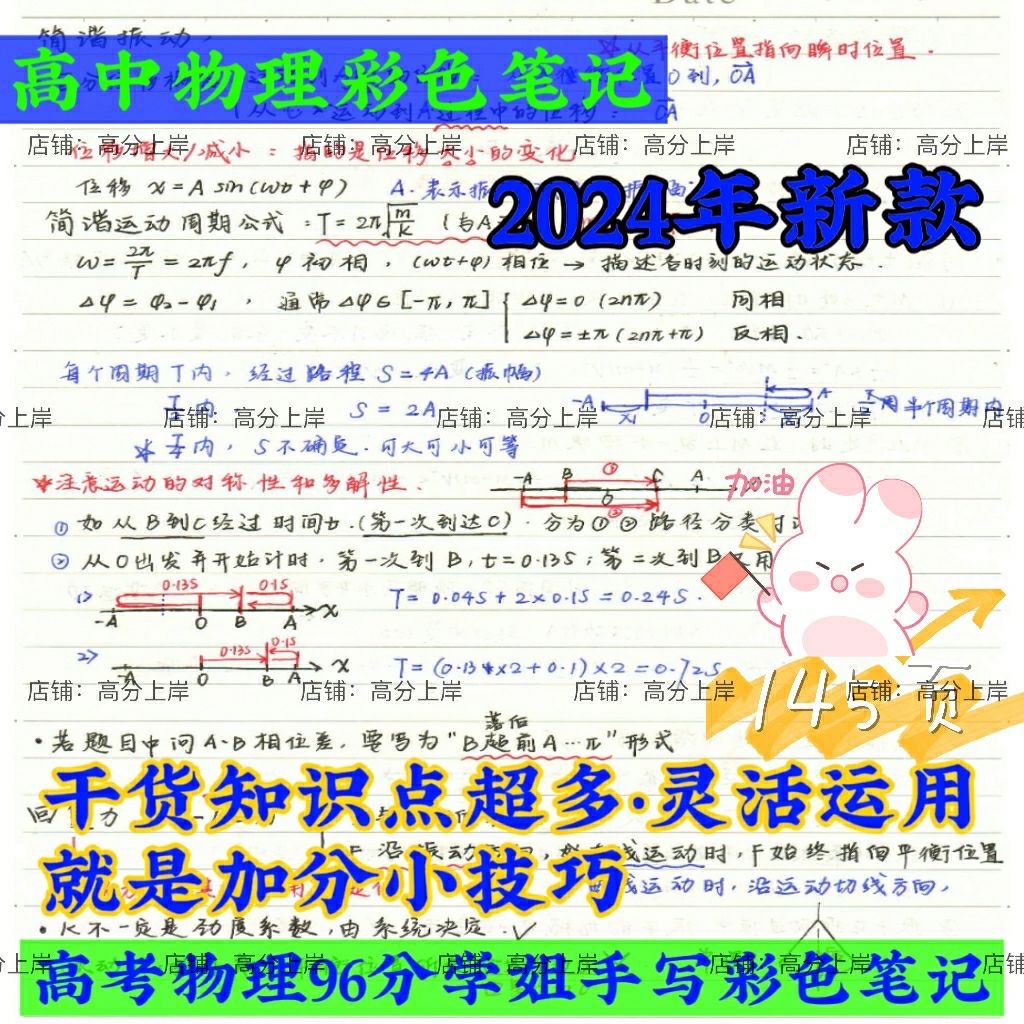 Date
简谐振动
☆从平衡位置指向瞬时位置.
高中物理彩色笔记
O到, OA
运动到A过程中的位移: OA
店铺：高分上岸 店铺：高分上岸 店铺：高分上岸 店铺：高分上岸
位移增大/减小：指的是位移大小的变化
位移 x=A sin(ωt+φ) A.表示振
2024年新款
简谐运动周期公式：T=2π√(m/k) (与A
ω=2π/T=2πf, φ初相, (ωt+φ)相位→描述各时刻的运动状态.
Δφ=φ₂-φ₁, 通常Δφ∈[-π,π] { Δφ=0 (2nπ) 同相
Δφ=±π(2nπ+π) 反相.
每个周期T内, 经过路程 S=4A(振幅)
T/2内. S=2A
-A x₁ O A T/2用半个周期内
高分上岸 店铺：高分上岸 店铺：高分上岸 店铺：高分上岸 店铺
☆T/4内, S不确定.可大可小可等
☆注意运动的对称性和多解性.
-A B ① C A
O ②
加油
①如从B到C经过时间t.(第一次到达C).分为①②路径分类讨
②从O出发并开始计时, 第一次到B, t=0.13S; 第二次到B又用
1> 0.13S 0.1S
-A O B A x
T=0.04S+2×0.1S=0.24S.
2> 0.13S 0.1S
-A O B A x
T=(0.13×2+0.1)×2=0.72S
店铺：高分上岸 店铺：高分上岸 店铺：高分上岸 店铺：高分上岸
145页
落后
·若题目中问A-B相位差, 要写为"B超前A…π"形式
干货知识点超多·灵活运用
F沿振动方向, 线运动时, F始终指向平衡位置
就是加分小技巧
线运动时, 沿运动切线方向,
·K不一定是劲度系数, 由系统决定.
高分上岸 店铺：高分上岸 店铺：高分上岸 店铺：高分上岸 店铺
高考物理96分学姐手写彩色笔记